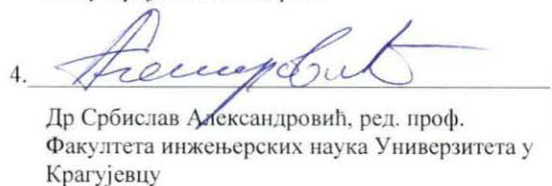 4.
Др Србислав Александровић, ред. проф.
Факултета инжењерских наука Универзитета у
Крагујевцу